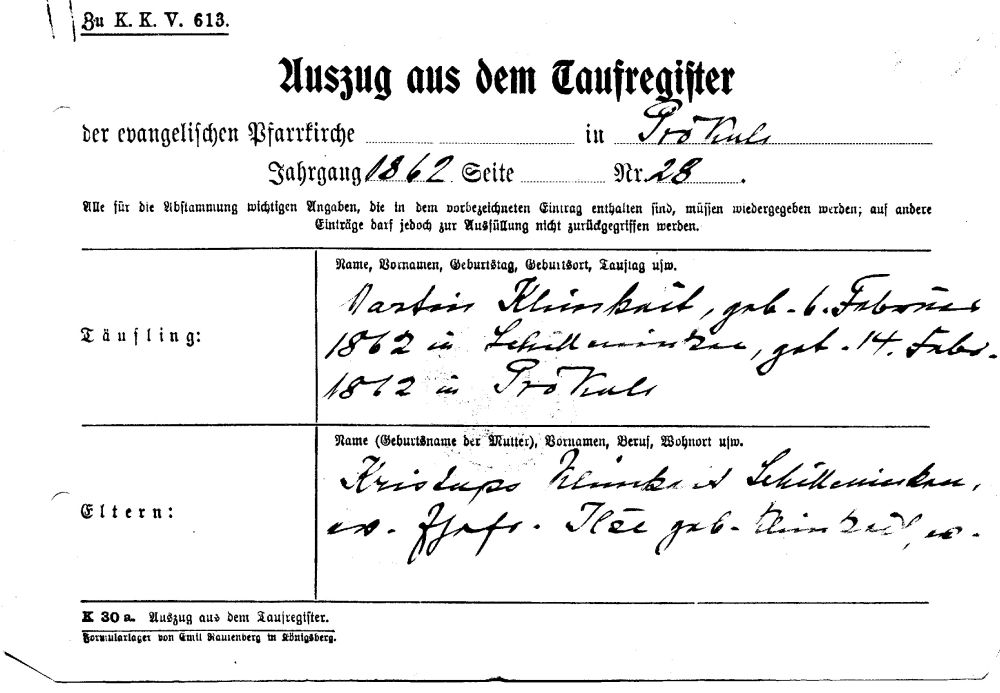 Zu K. K. V. 613.
Auszug aus dem Taufregister
der evangelischen Pfarrkirche in Prökuls
Jahrgang 1862 Seite Nr. 28.
Alle für die Abstammung wichtigen Angaben, die in dem vorbezeichneten Eintrag enthalten sind, müssen wiedergegeben werden; auf andere
Einträge darf jedoch zur Ausfüllung nicht zurückgegriffen werden.
Name, Vornamen, Geburtstag, Geburtsort, Tauftag usw.
Täufling:
Martin Klimkeit, geb. 6. Februar
1862 in Schilleninken, get. 14. Febr.
1862 in Prökuls
Name (Geburtsname der Mutter), Vornamen, Beruf, Wohnort usw.
Eltern:
Kristups Klimkeit Schilleninken,
ev. Ilse geb. Klimkeit, ev.
K 30 a. Auszug aus dem Taufregister.
Formularlager von Emil Rautenberg in Königsberg.